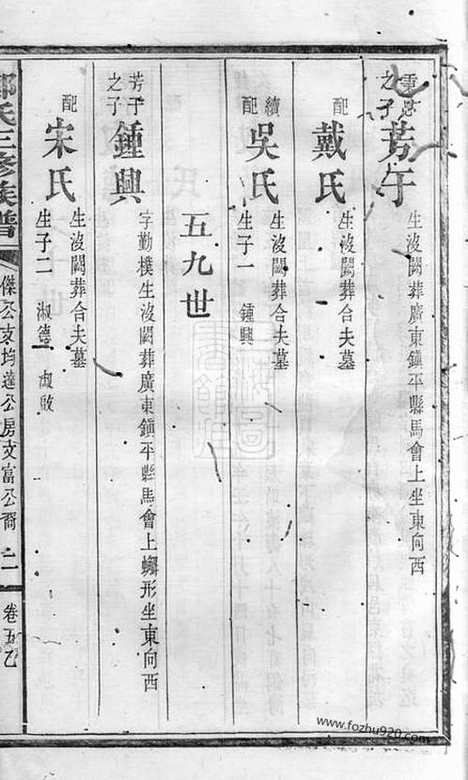 之子
芳午
生沒闕葬廣東鎮平縣馬會上坐東向西
配
戴氏
生沒闕葬合夫墓
續配
吳氏
生沒闕葬合夫墓
生子一 鍾興
五九世
芳午之子
鍾興
字勤樸生沒闕葬廣東鎮平縣馬會上蠏形坐東向西
配
宋氏
生沒闕葬合夫墓
生子二 淑德 淑啟
氏三修族譜
傑公支均蓮公房文富公裔
卷五乙
www.fozhu920.com